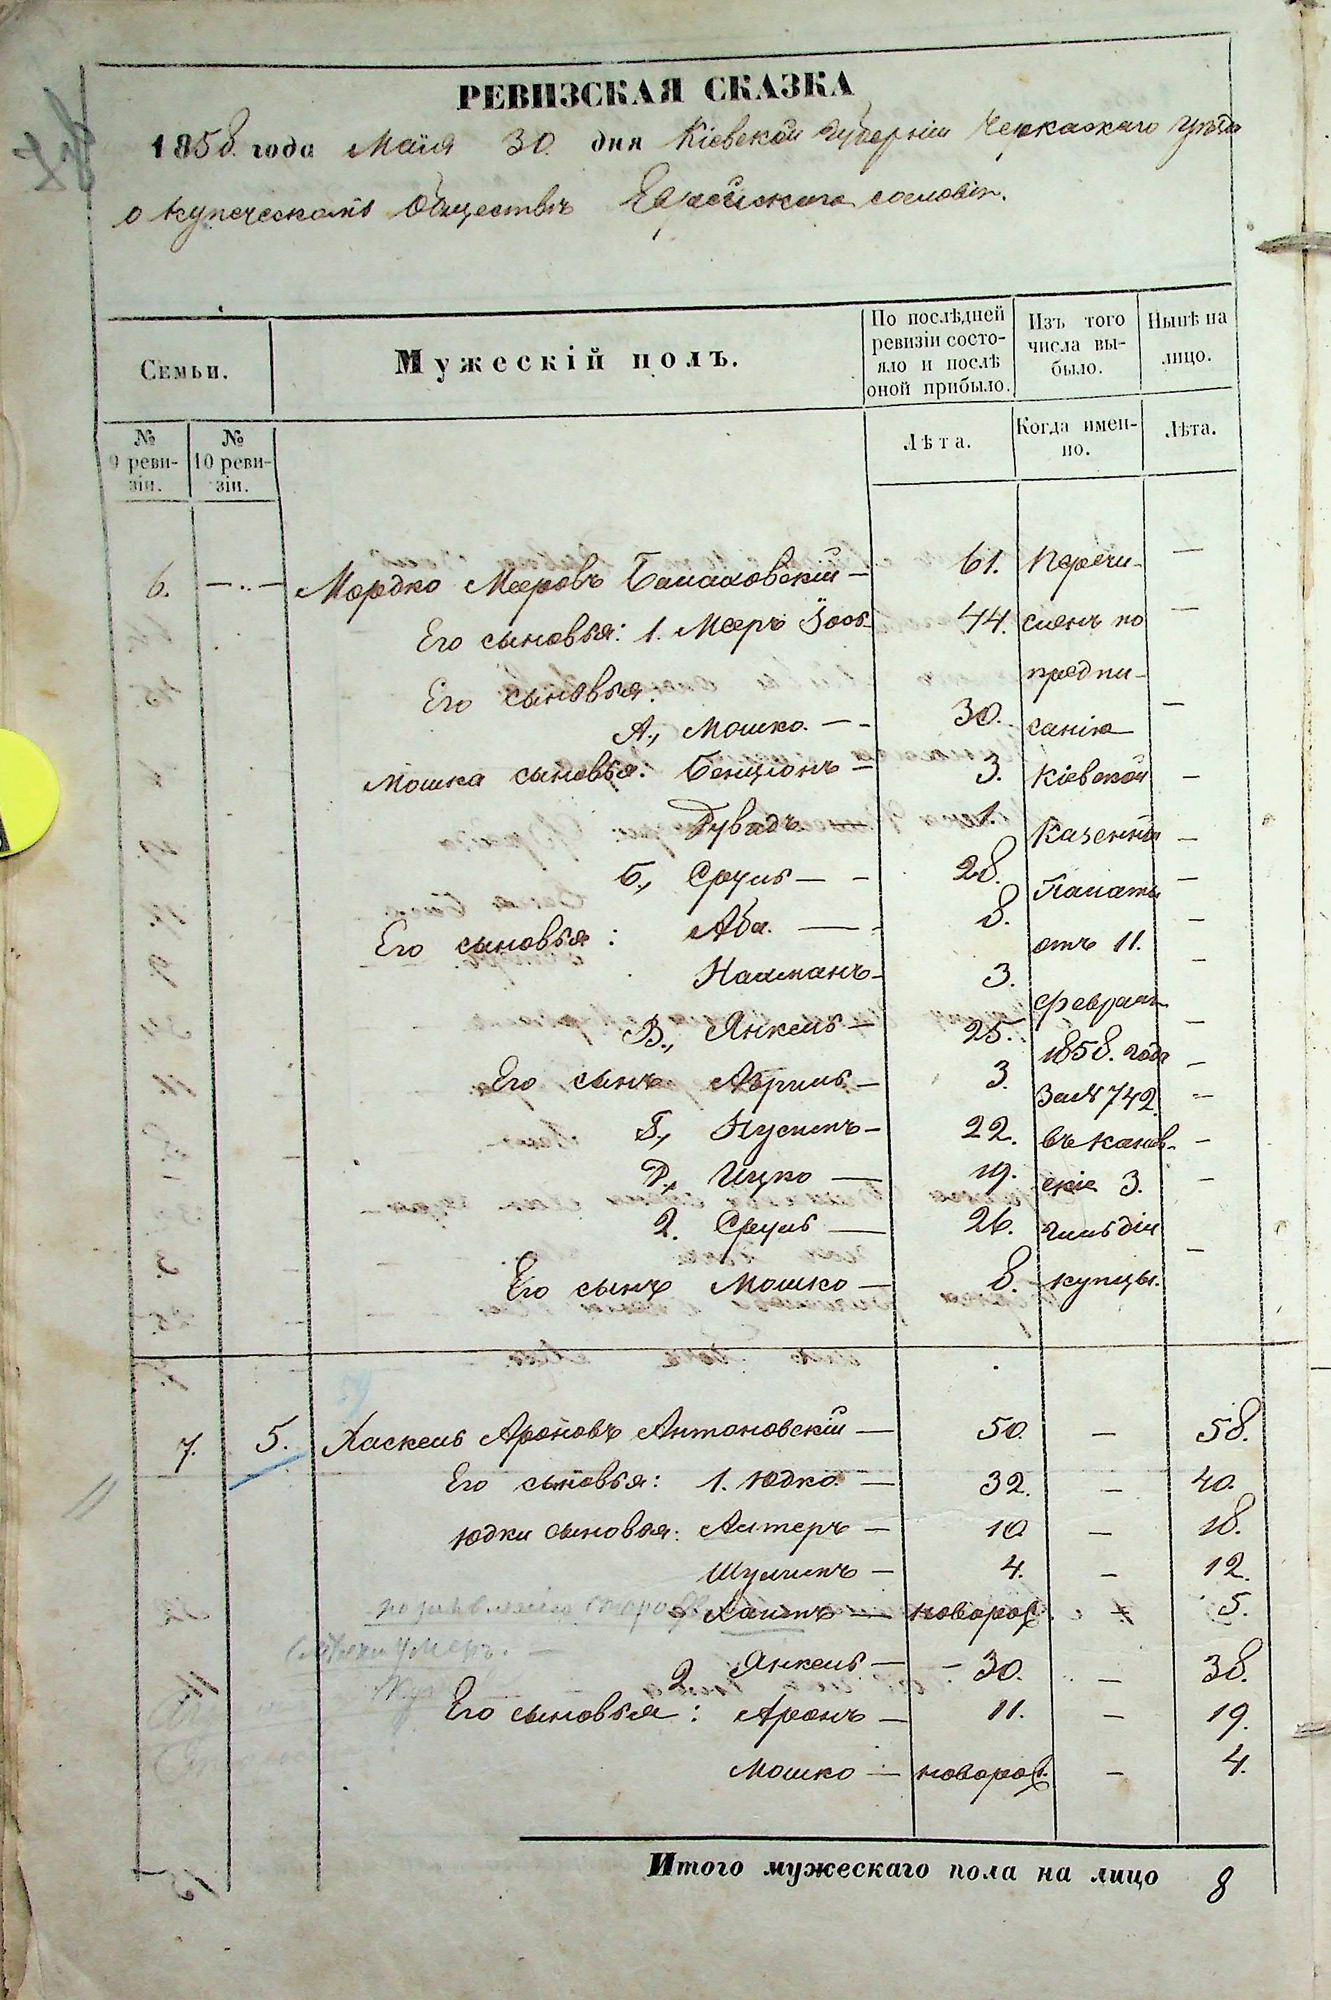 РЕВИЗСКАЯ СКАЗКА
1858. года Маія 30. дня Кіевской Губерніи Черкаскаго уѣзда
о купеческомъ Обществѣ Еврейскаго сословія.
Семьи.
Мужескій полъ.
По послѣдней ревизіи состояло и послѣ оной прибыло.
Изъ того числа выбыло.
Нынѣ на лицо.
№ 9 ревизіи.
№ 10 ревизіи.
Лѣта.
Когда именно.
Лѣта.
6. — Мордко Мееровъ Балаховскій — 61. Перечи- —
Его сыновья: 1. Мееръ 44. сленъ по —
Его сыновья: предпи-
А., Мошко. — 30. санію —
Мошка сыновья: Бенціонъ — 3. Кіевской —
Дувидъ — 1. Казенной —
Б., Сруль — 28. Палаты —
Его сыновья: Аба. — 8. отъ 11. —
Калманъ — 3. февраля —
В., Янкель — 25. 1858. года —
Его сынъ — 3. За № 742. —
Г., Нусимъ — 22. въ канев- —
Д., Ицко — 19. скіе 3. —
2. Сруль — 26. гильдіи —
Его сынъ Мошко — 8. купцы.
7. 5. Хаскель Ароновъ Антоновскій — 50. — 58.
Его сыновья: 1. Юдко. — 32. — 40.
Юдки сыновья: Алтеръ — 10. — 18.
Шулимъ — 4. — 12.
Хаимъ — новорож. — 5.
2 Янкель — 30. — 38.
Его сыновья: Аронъ — 11. — 19.
Мошко — новорож. — 4.
Итого мужескаго пола на лицо 8